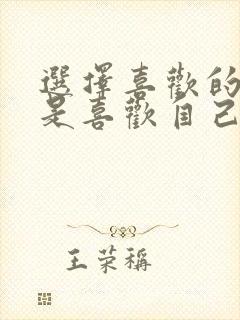 選擇喜歡的
是喜歡自己
王荣稱